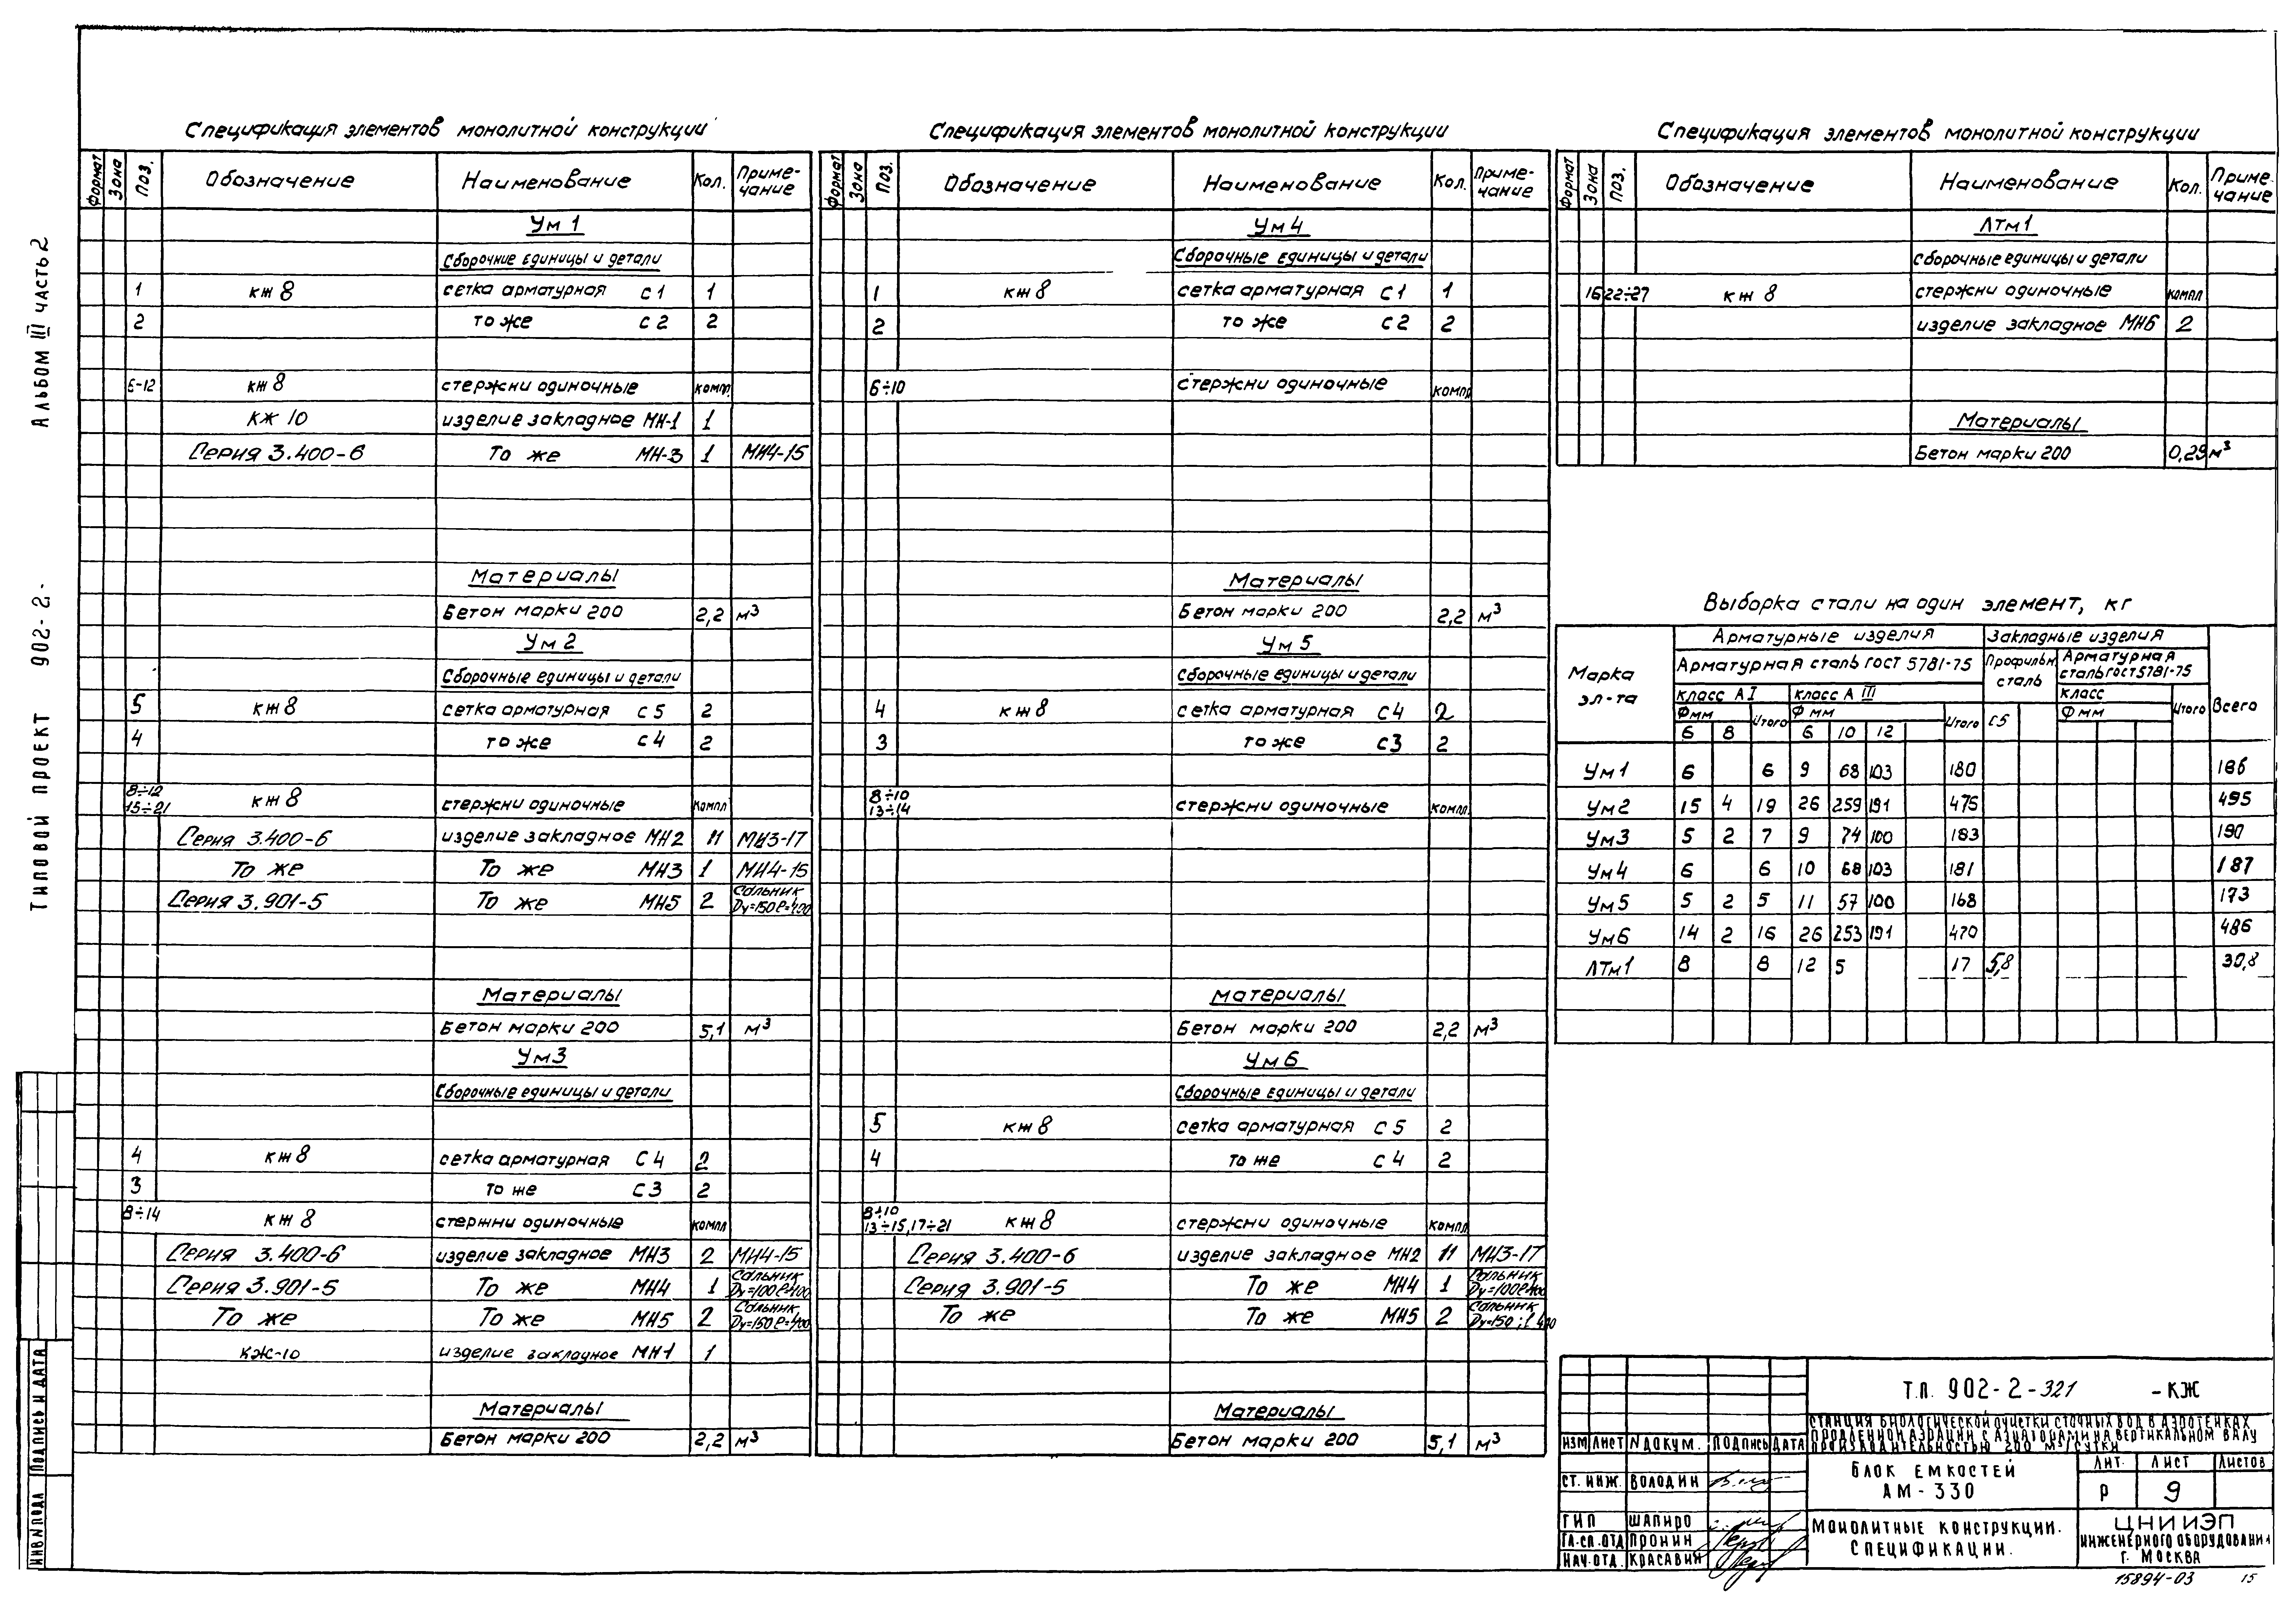 Альбом III часть 2
Типовой проект 902-2-
Инв.№ подл Подпись и дата
Спецификация элементов монолитной конструкции
Формат Зона Поз. Обозначение Наименование Кол. Приме-чание
Ум 1
Сборочные единицы и детали
1 кж 8 сетка арматурная С1 1
2 то же С2 2
6-12 кж 8 стержни одиночные компл
КЖ 10 изделие закладное МН-1 1
Серия 3.400-6 То же МН-3 1 МН4-15
Материалы
Бетон марки 200 2,2 м³
Ум 2
Сборочные единицы и детали
5 кж 8 сетка арматурная С5 2
4 то же С4 2
8÷12
15÷21 кж 8 стержни одиночные компл
Серия 3.400-6 изделие закладное МН2 11 МН3-17
То же То же МН3 1 МН4-15
Серия 3.901-5 То же МН5 2 Сальник Dу=150 ℓ=400
Материалы
Бетон марки 200 5,1 м³
Ум3
Сборочные единицы и детали
4 кж 8 сетка арматурная С4 2
3 то же С3 2
8÷14 кж 8 стержни одиночные компл
Серия 3.400-6 изделие закладное МН3 2 МН4-15
Серия 3.901-5 То же МН4 1 Сальник Dу=100 ℓ=400
То же То же МН5 2 Сальник Dу=150 ℓ=400
КЖ-10 изделие закладное МН-1 1
Материалы
Бетон марки 200 2,2 м³
Спецификация элементов монолитной конструкции
Формат Зона Поз. Обозначение Наименование Кол. Приме-чание
Ум 4
Сборочные единицы и детали
1 кж 8 сетка арматурная С1 1
2 то же С2 2
6÷10 стержни одиночные компл
Материалы
Бетон марки 200 2,2 м³
Ум 5
Сборочные единицы и детали
4 кж 8 сетка арматурная С4 2
3 то же С3 2
8÷10
13÷14 стержни одиночные компл.
Материалы
Бетон марки 200 2,2 м³
Ум 6
Сборочные единицы и детали
5 кж 8 сетка арматурная С5 2
4 то же С4 2
8÷10
13÷15, 17÷21 кж 8 стержни одиночные компл.
Серия 3.400-6 изделие закладное МН2 11 МН3-17
Серия 3.901-5 То же МН4 1 Сальник Dу=100 ℓ=400
То же То же МН5 2 Сальник Dу=150; ℓ 400
Материалы
Бетон марки 200 5,1 м³
Спецификация элементов монолитной конструкции
Формат Зона Поз. Обозначение Наименование Кол. Приме-чание
ЛТм1
Сборочные единицы и детали
16 22÷27 кж 8 стержни одиночные компл
изделие закладное МН6 2
Материалы
Бетон марки 200 0,29 м³
Выборка стали на один элемент, кг
Марка эл-та Арматурные изделия Закладные изделия Всего
Арматурная сталь гост 5781-75 Профильн сталь Арматурная сталь гост 5781-75
класс А I класс А III класс
Ф мм Итого Ф мм Итого С5 Ф мм Итого
6 8 6 10 12
Ум1 6 6 9 68 103 180 186
Ум2 15 4 19 26 259 191 475 495
Ум3 5 2 7 9 74 100 183 190
Ум4 6 6 10 68 103 181 187
Ум5 5 2 5 11 57 100 168 173
Ум6 14 2 16 26 253 191 470 486
ЛТм1 8 8 12 5 17 5,8 30,8
Т.П. 902-2-321 -КЖ
Станция биологической очистки сточных вод в аэротенках
продленной аэрации с аэраторами на вертикальном валу
производительностью 200 м³/сутки
Изм Лист № докум. Подпись Дата
Ст. инж. Володин
ГИП Шапиро
Гл.сп.отд Пронин
Нач.отд. Красавин
Блок емкостей
АМ-330
Лит. Лист Листов
Р 9
Монолитные конструкции.
Спецификации.
ЦНИИЭП
инженерного оборудования
г. Москва
15894-03 15